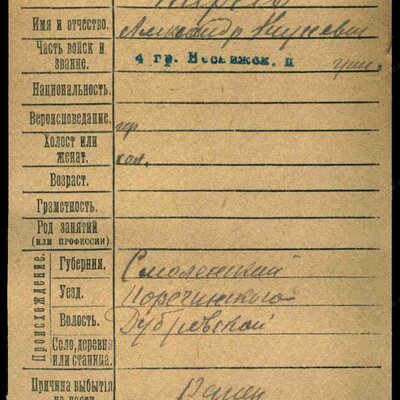 Имя и отчество. Александр
Часть войск и звание. 4 гр. Несвижск. п
Национальность.
Вероисповедание. пр
Холост или женат. хол.
Возраст.
Грамотность.
Род занятий (или профессия).
Происхождение.
Губерния. Смоленской
Уезд. Поречинского
Волость. Дубровской
Село, деревня или станица.
Причина выбытия Ранен